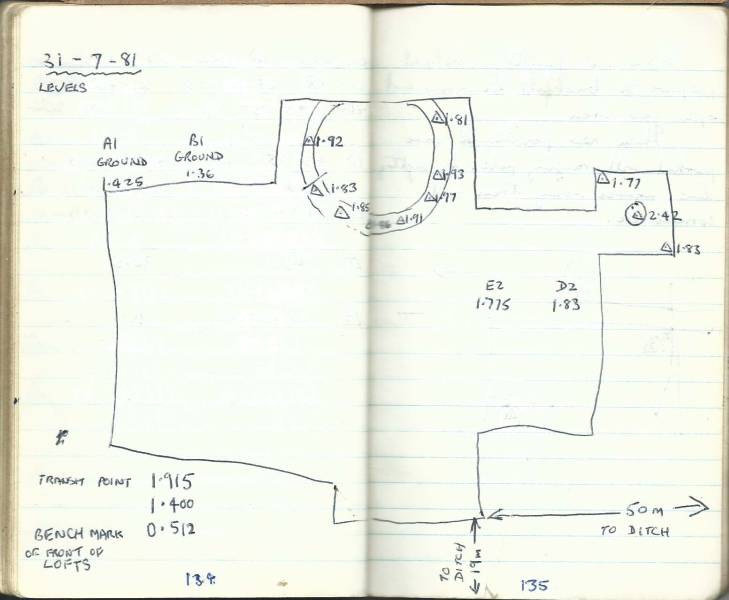 31-7-81
LEVELS
A1
GROUND
1.425
B1
GROUND
1.36
1.92
1.83
1.85
1.91
1.77
1.93
1.81
1.77
2.42
1.83
E2
1.775
D2
1.83
TRANSIT POINT 1.915
1.400
BENCH MARK 0.512
OF FRONT OF
LOFTS
50M
TO DITCH
TO DITCH
19m
134
135